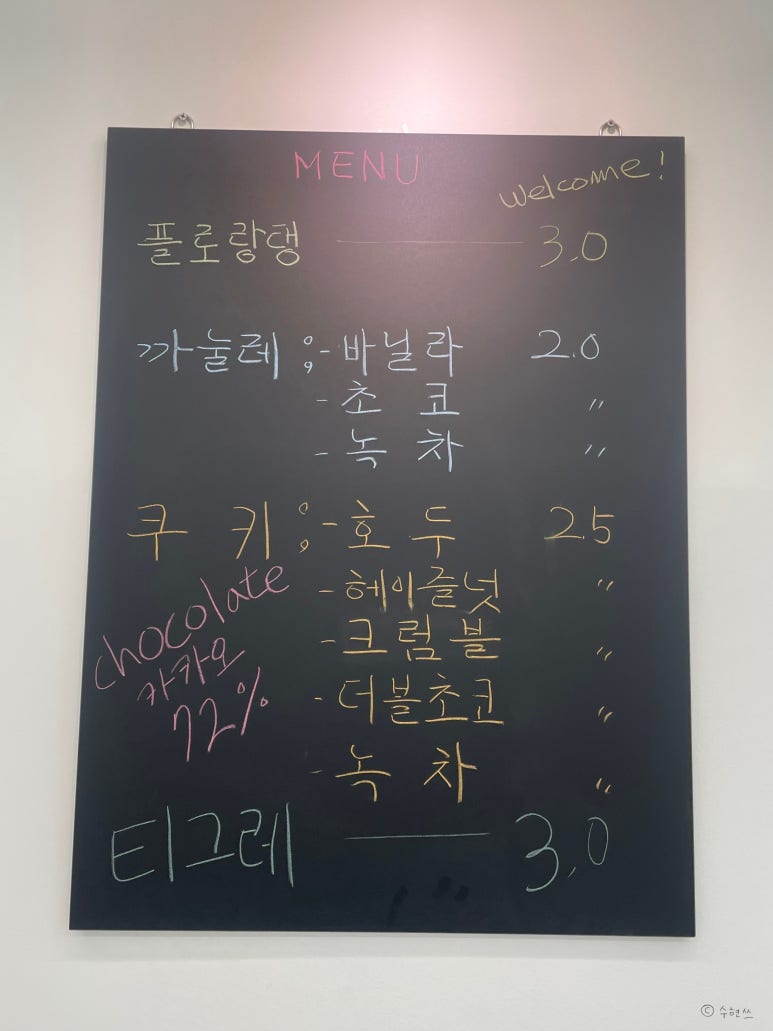 MENU
welcome!
플로랑탱 3.0
까눌레 ; - 바닐라 2.0
- 초코 〃
- 녹차 〃
쿠키 ; - 호두 2.5
- 헤이즐넛 〃
- 크럼블 〃
- 더블초코 〃
- 녹차 〃
chocolate
카카오
72%
티그레 3.0
© 수현쓰